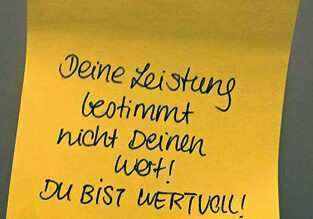 Deine Leistung
bestimmt
nicht Deinen
Wert!
DU BIST WERTVOLL!